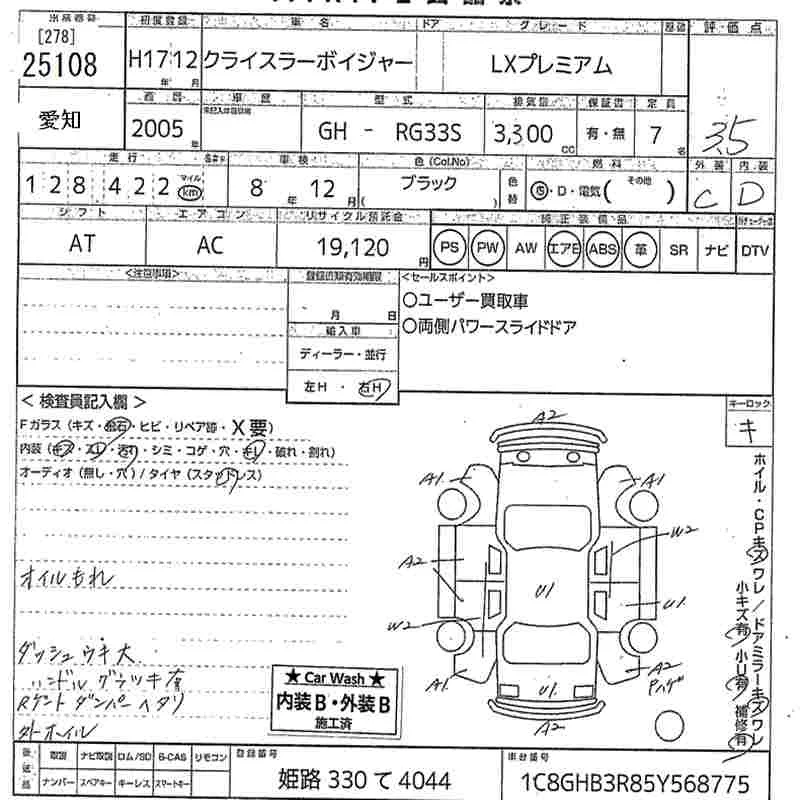 出品番号 初度登録 車名 ドア グレード 評価点
[278]
25108 H17 12 クライスラーボイジャー LXプレミアム
年 月
愛知 車歴 型式 排気量 保証書 定員
2005 年 GH - RG33S 3,300 CC 有・無 7 名 3.5
走行 車検 色(Col.No) 燃料 外装 内装
128,422 マイル km 8 年 12 月 ブラック 色替 ・D・電気( その他 ) C D
シフト エアコン リサイクル預託金 純正装備品
AT AC 19,120 円 PS PW AW エアB ABS 革 SR ナビ DTV
<注意事項> <セールスポイント>
○ユーザー買取車
月 日 ○両側パワースライドドア
輸入車
ディーラー・並行
左H・右H
<検査員記入欄> キーロック
Fガラス(キズ・飛石・ヒビ・リペア跡・X要) キ
内装(キズ・スレ・汚れ・シミ・コゲ・穴・キレ・破れ・割れ)
オーディオ(無し・穴)/タイヤ(スタッドレス)
A2
A1 A1
W2
A2
U1 U1
W2
A1 A2
Pハゲ
U1
A2
ホイル・CPキズワレ/ドアミラーキズワレ
小キズ有 小U有 補修有
オイルもれ
ダッシュウキ大
ハンドルグラツキ有
Rゲートダンパーヘタリ
外ホイル
★ Car Wash ★
内装B・外装B
施工済
後送品 取説 ナビ取説 ロム/SD B-CAS リモコン 登録番号 車台番号
ナンバー スペアキー キーレス スマートキー 姫路 330 て 4044 1C8GHB3R85Y568775